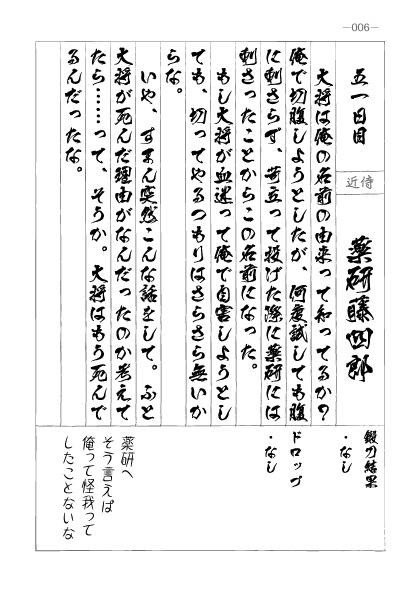 —006—
五一日目
近侍
薬研藤四郎
大将は俺の名前の由来って知ってるか?
俺で切腹しようとしたが、何度試しても腹
に刺さらず、苛立って投げた際に薬研には
刺さったことからこの名前になった。
もし大将が血迷って俺で自害しようとし
ても、切ってやるつもりはさらさら無いか
らな。
いや、すまん突然こんな話をして。ふと
大将が死んだ理由がなんだったのか考えて
たら……って、そうか。大将はもう死んで
るんだったな。
鍛刀結果
・なし
ドロップ
・なし
薬研へ
そう言えば
俺って怪我って
したことないな